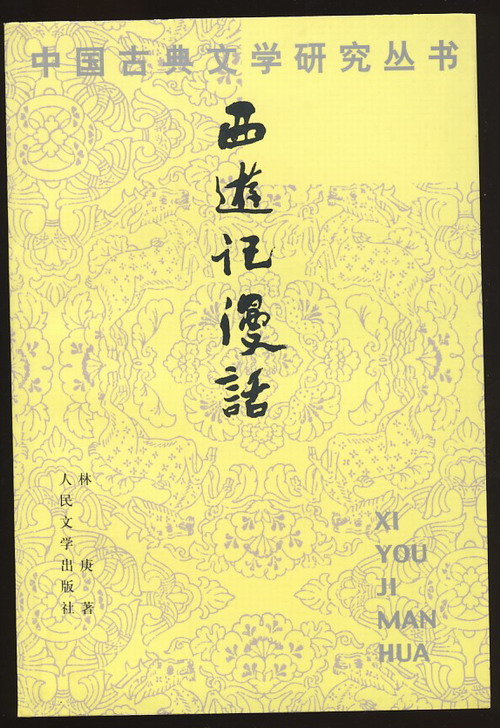 中国古典文学研究丛书
西遊记漫話
林庚著
人民文学出版社
XI
YOU
JI
MAN
HUA